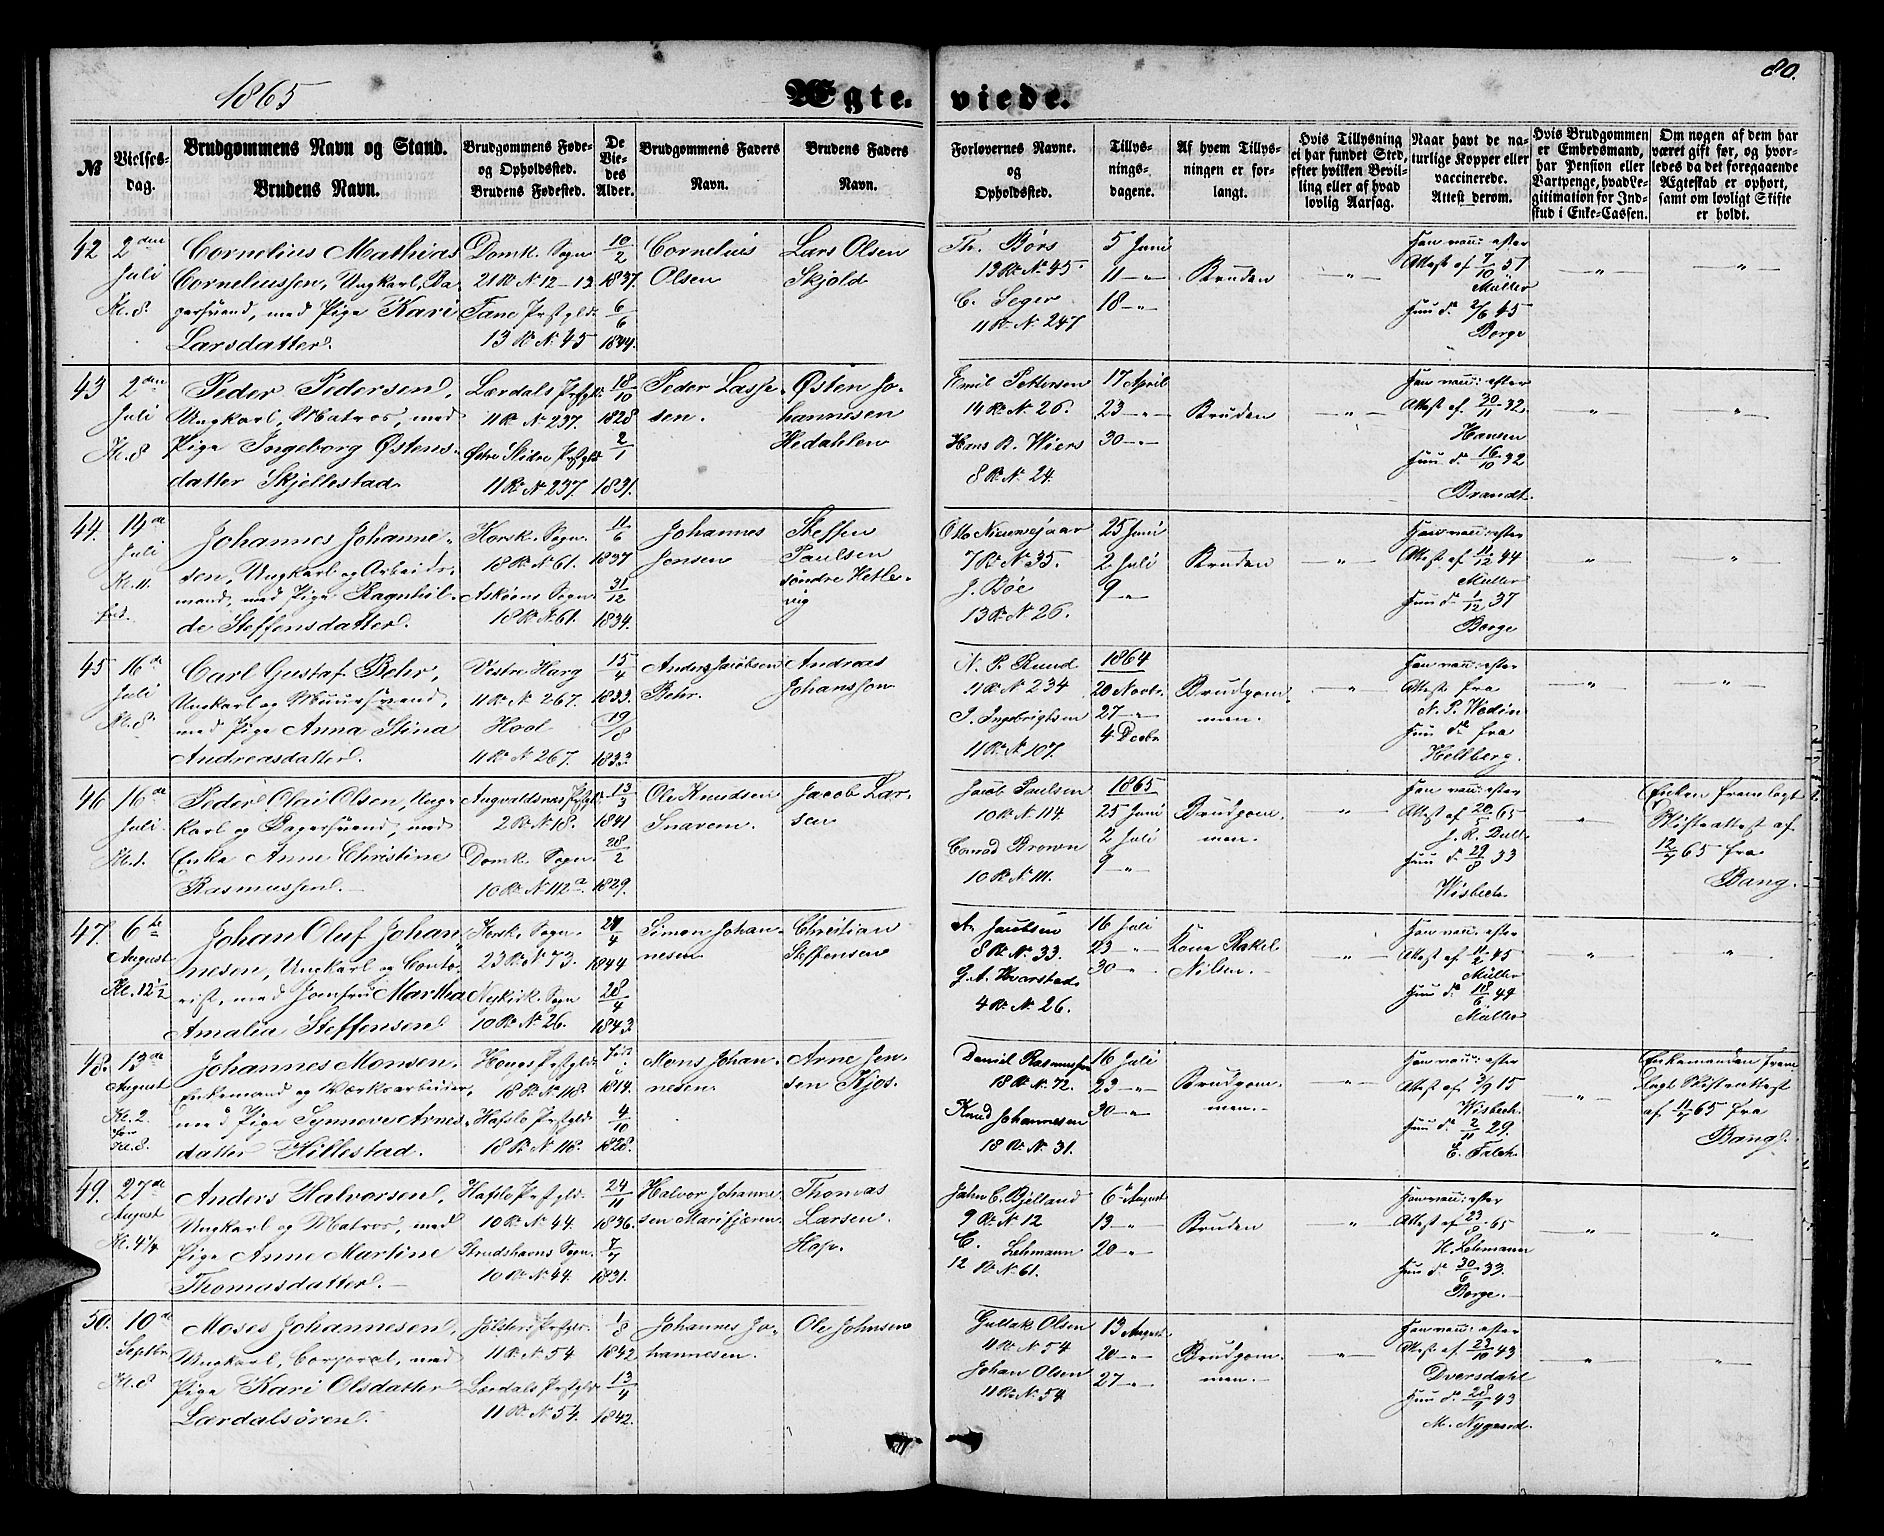 1865
Ægte-
viede.
80.
№
Vielses-
dag.
Brudgommens Navn og Stand.
Brudens Navn.
Brudgommens Føde-
og Opholdssted.
Brudens Fødested.
De
Vie-
des
Alder.
Brudgommens Faders
Navn.
Brudens Faders
Navn.
Forlovernes Navne.
og
Opholdssted.
Tillys-
nings-
dagene.
Af hvem Tillys-
ningen er for-
langt.
Hvis Tillysning
ei har fundet Sted,
efter hvilken Bevil-
ling eller af hvad
lovlig Aarsag.
Naar havt de na-
turlige Kopper eller
vaccinerede.
Attest derom.
Hvis Brudgommen
er Embedsmand,
har Pension eller
Vartpenge, hvad Le-
gitimation for Ind-
skud i Enke-Cassen.
Om nogen af dem har
været gift før, og hvor-
ledes da det foregaaende
Ægteskab er ophørt,
samt om lovligt Skifte
er holdt.
42
2den
Juli
Kl. 8.
Cornelius Mathias
Corneliussen, Ungkarl, Ba-
gersvend, med Pige Kari
Larsdatter.
Domk. Sogn
21 R. N. 12-13
Fane Prstgld.
13 R. N. 45
10/2
1837.
6/6
1834.
Cornelius
Olsen
Lars Olsen
Skjold
Th. Börs
13 R. N. 45.
C. Seger
11 R. N. 247
5 Juni
11 -"-
18 -"-
Bruden
-"-
Han vacc: efter
Attest af 7/10 51
Müller
Hun do 2/6 45
Borge
-"-
-"-
43
2den
Juli
Kl. 8
Peder Pedersen,
Ungkarl, Matros, med
Pige Ingeborg Østens-
datter Skjellestad.
Lærdals Prstgld.
11 R. N. 237.
Østre Slidre Prstgld.
11 R. N. 237.
18/10
1828
2/1
1831.
Peder Lasse-
sen.
Østen Jo-
hannesen
Hedahlen
Emil Pettersen
14 R. N. 26.
Hans B. Wiers
8 R. N. 24.
17 April
23 -"-
30 -"-
Bruden
-"-
Han vacc: efter
Attest af 30/11 32.
Hansen
Hun do 16/10 32
Brandt.
-"-
-"-
44.
14de
Juli
Kl. 11.
Johannes Johanne-
sen, Ungkarl og Arbeids-
mand, med Pige Ragnhil-
de Steffensdatter.
Korsk. Sogn.
18 R. N. 61.
Askøens Sogn.
18 R. N. 61.
11/6
1837
31/12
1834.
Johannes
Jensen
Steffen
Paulsen
søndre Hetle-
vig
Otto Nieuwejaar
7 R. N. 35.
J. Böe
13 R. N. 26.
25 Juni
2 Juli
9 -"-
Bruden
-"-
Han vacc: efter
Attest af 11/12 44
Müller
Hun do 1/12 37
Borge
-"-
-"-
45
16de
Juli
Kl. 8.
Carl Gustaf Behr,
Ungkarl og Muursvend,
med Pige Anna Stina
Andreasdatter.
Vestre Harg
11 R. N. 267.
Hool
11 R. N. 267.
15/4
1833.
19/8
1833
Anders Jacobsen
Behr.
Andreas
Johansson
N. P. Rund
11 R. N. 234
J. Ingebrigtsen
11 R. N. 107.
1864
20 Novbr.
27 -"-
4 Decbr
Brudgom-
men.
-"-
Han vacc: efter
Attest fra
N. P. Wedin
Hun do fra
Hellberg.
-"-
-"-
46
16de
Juli
Kl. 1.
Peder Olai Olsen, Ung-
karl og Bagersvend, med
Enke Anne Christine
Rasmussen.
Augvaldsnes Prstgld.
2 R. N. 18.
Domk. Sogn.
10 R. N. 112a.
13/3
1841
28/2
1829.
Ole Knudsen
Snarem.
Jacob Lar-
sen
Jacob Paulsen
10 R. N. 114.
Conrad Brown
10 R. N. 111.
1865
25 Juni
2 Juli
9 -"-
Brudgom-
men.
"
Han vacc: efter
Attest af 20/5 65
Hun do 29/8 33
Wisbech.
-"-
Enken fremlagt
Skifteattest af
12/7 65 fra
Bang.
47.
6te
August
Kl. 12½
Johan Oluf Johan-
nesen, Ungkarl og Conto-
rist, med Jomfru Martha
Amalia Steffensen
Korsk. Sogn.
23 R. N. 73.
Nykirk. Sogn
10 R. N. 26.
1844
28/4
1843.
Simon Johan-
nesen
Christian
Steffensen
A. Jacobsen
8 R. N. 33.
G. A. Kvarstad
4 R. N. 26.
16 Juli
23 -"-
30 -"-
Kone Rakel
Nilsen.
-"-
Han vacc: efter
Attest af 11/2 45
Müller
Hun do 18/6 49
Müller
-"-
-"-
48.
13de
August
Kl. 2
Kl. 8.
Johannes Monsen,
Enkemand og Værksarbeider,
med Pige Synneve Arnes-
datter Hillestad.
Houes Prstgld.
18 R. N. 118
Hafslo Prstgld.
18 R. N. 118.
1814.
4/10
1828.
Mons Johan-
nesen.
Arne Jen-
sen Kjos.
Daniel Rasmussen
18 R. N. 72.
Knud Johannesen
18 R. N. 31.
16 Juli
23 -"-
30 -"-
Brudgom-
men.
-"-
Han vacc: efter
Attest af 3/9 15
Wisbech.
Hun do 2/11 29.
E. Falch.
-"-
Enkemanden frem-
lagt Skifteattest
af 11/7 65 fra
Bang.
49.
27de
August
Kl. 4¼
Anders Halvorsen,
Ungkarl og Matros, med
Pige Anne Martine
Thomasdatter.
Hafslo Prstgld.
10 R. N. 44.
Strudshavns Sogn.
10 R. N. 44.
24/11
1836.
7/7
1831.
Halvor Johanne-
sen Marifjæren
Thomas
Larsen
Hop.
John C. Bjelland
9 R. N. 12
C. Lehmann
12 R. N. 61.
6 August
13 -"-
20 -"-
Bruden
-"-
Han vacc: efter
Attest af 23/8 65
H. Lehmann
Hun do 30/6 33.
Borge.
-"-
-"-
50.
10de
Septbr.
Kl. 8
Moses Johannesen,
Ungkarl, Corporal, med
Pige Kari Olsdatter
Lærdalsøren.
Jølsters Prstgld.
11 R. N. 54
Lærdals Prstgld.
11 R. N. 54.
1/8
1842
13/4
1842.
Johannes Jo-
hannesen.
Ole Johnsen
Gullak Olsen
11 R. N. 54
Johan Olsen
11 R. N. 54
13 August
20 -"-
27 -"-
Brudgom-
men.
-"-
Han vacc: efter
Attest af 23/10 43
Dversdahl
Hun do 28/9 43
M. Nygaard.
-"-
-"-